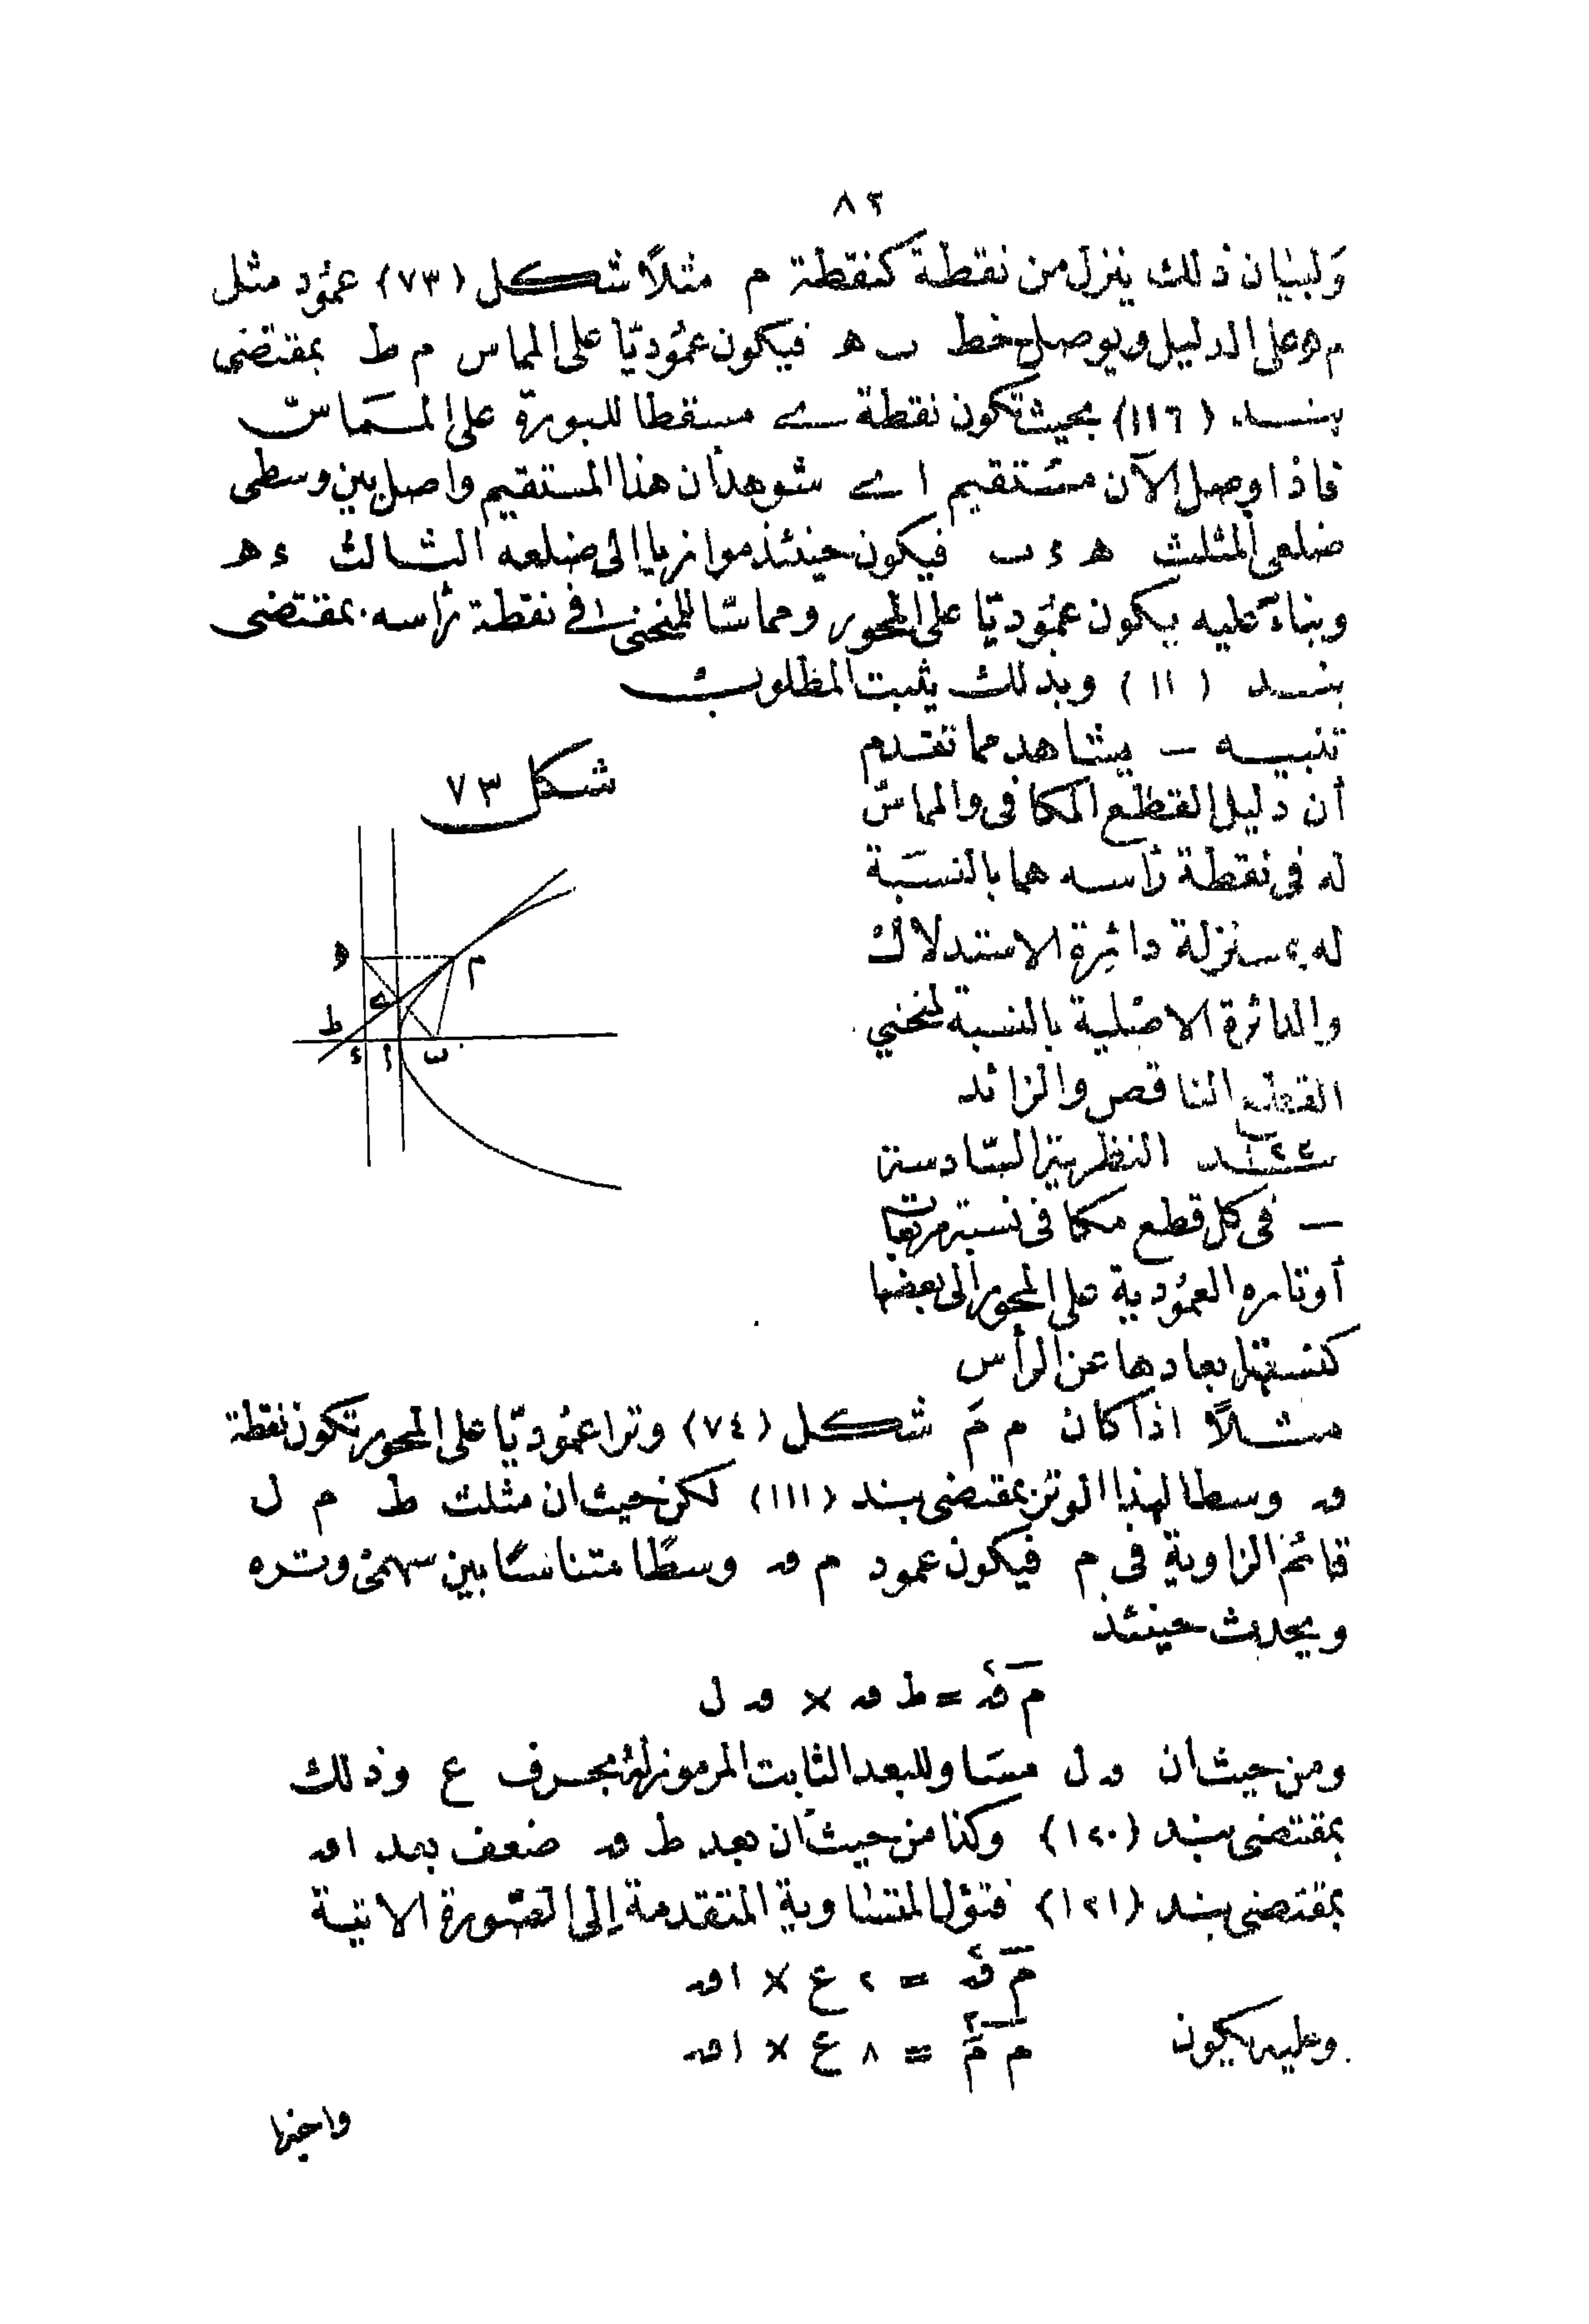 ٨٢
وَلبيان ذلك ينزل من نقطة كنقطة م مثلاً شكل (٧٣) عمُود مثل
م ه على الدليل ويوصل خط ب ه فيكون عمُوديّا على المماس م ط بمقتضى
بند (١١٦) بحيث تكون نقطة ى مسقطا للبورة على المـمَاسّ
فاذا وصل الآن مسُتقيم ا ى شوهد أن هذا المستقيم واصل بين وسطى
ضلعى المثلث ه ء ب فيكون حينئذ موازيا الى ضلعه الثالث ء ه
وبناءً عليه يكون عمُوديّا على المحور ومماسّا للمنحنى ا فى نقطة رأسه بمقتضى
بند (١١) وبذلك يثبت المطلوب
تنبيه — يشاهد مما تقدم
أن دليل القطع المكافى والمماسّ
له فى نقطة رأسه هما بالنسَبة
له بمنزلة دائرة الاستدلال
والدائرة الاصلية بالنسبة لمنحني
القطع الناقص والزائد
بند ١٢٢ النظرية السّادسة
— فى كل قطع مكافى نسبة مربعات
أوتاره العموُدية على المحور الى بعضها
كنسبة ابعادها عن الرأس
شكل ٧٣
ه
م
ى
ط
ء
ا
ب
مثلاً اذا كان م مَ شكل (٧٤) وترا عمُوديّا على المحور تكون نقطة
ق وسطا لهذا الوتر بمقتضى بند (١١١) لكن حيث ان مثلث ط م ل
قائم الزاوية فى م فيكون عمود م ق وسطًا متناسبًا بين سهمى وتره
ويحدث حينئذ
م ق٢ = ط ق × ق ل
ومن حيث أن ق ل مسَاو للبعد الثابت المرموز له بحرف ع وذلك
بمقتضى بند (١٢٠) وكذا من حيث أن بعد ط ق ضعف بعد ا ق
بمقتضى بند (١٢١) فتؤل المتساوية المتقدمة إلى الصّورة الاتية
م ق٢ = ٢ ع × ا ق
وعليه يكون م مَ٢ = ٨ ع × ا ق